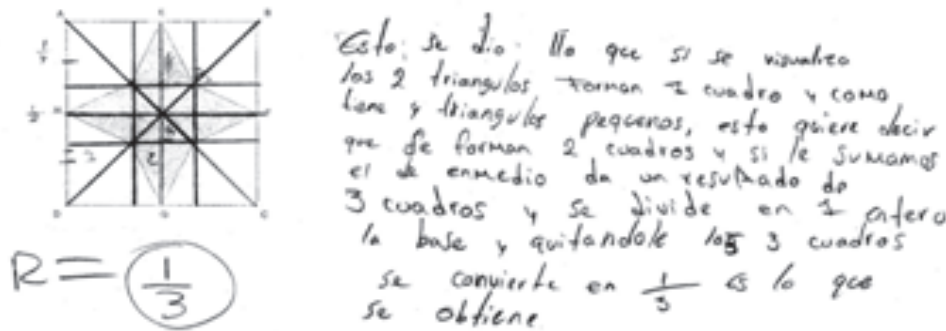 A
B
D
C
R = 1/3
Esto se dio
que si se visualiza
los 2 triangulos forman 1 cuadro y como
tiene 4 triangulos pequenos, esto quiere decir
que se forman 2 cuadros y si le sumamos
el de enmedio da un resultado de
3 cuadros y se divide en 1 entero
la base y quitandole los 3 cuadros
se convierte en 1/3 es lo que
se obtiene